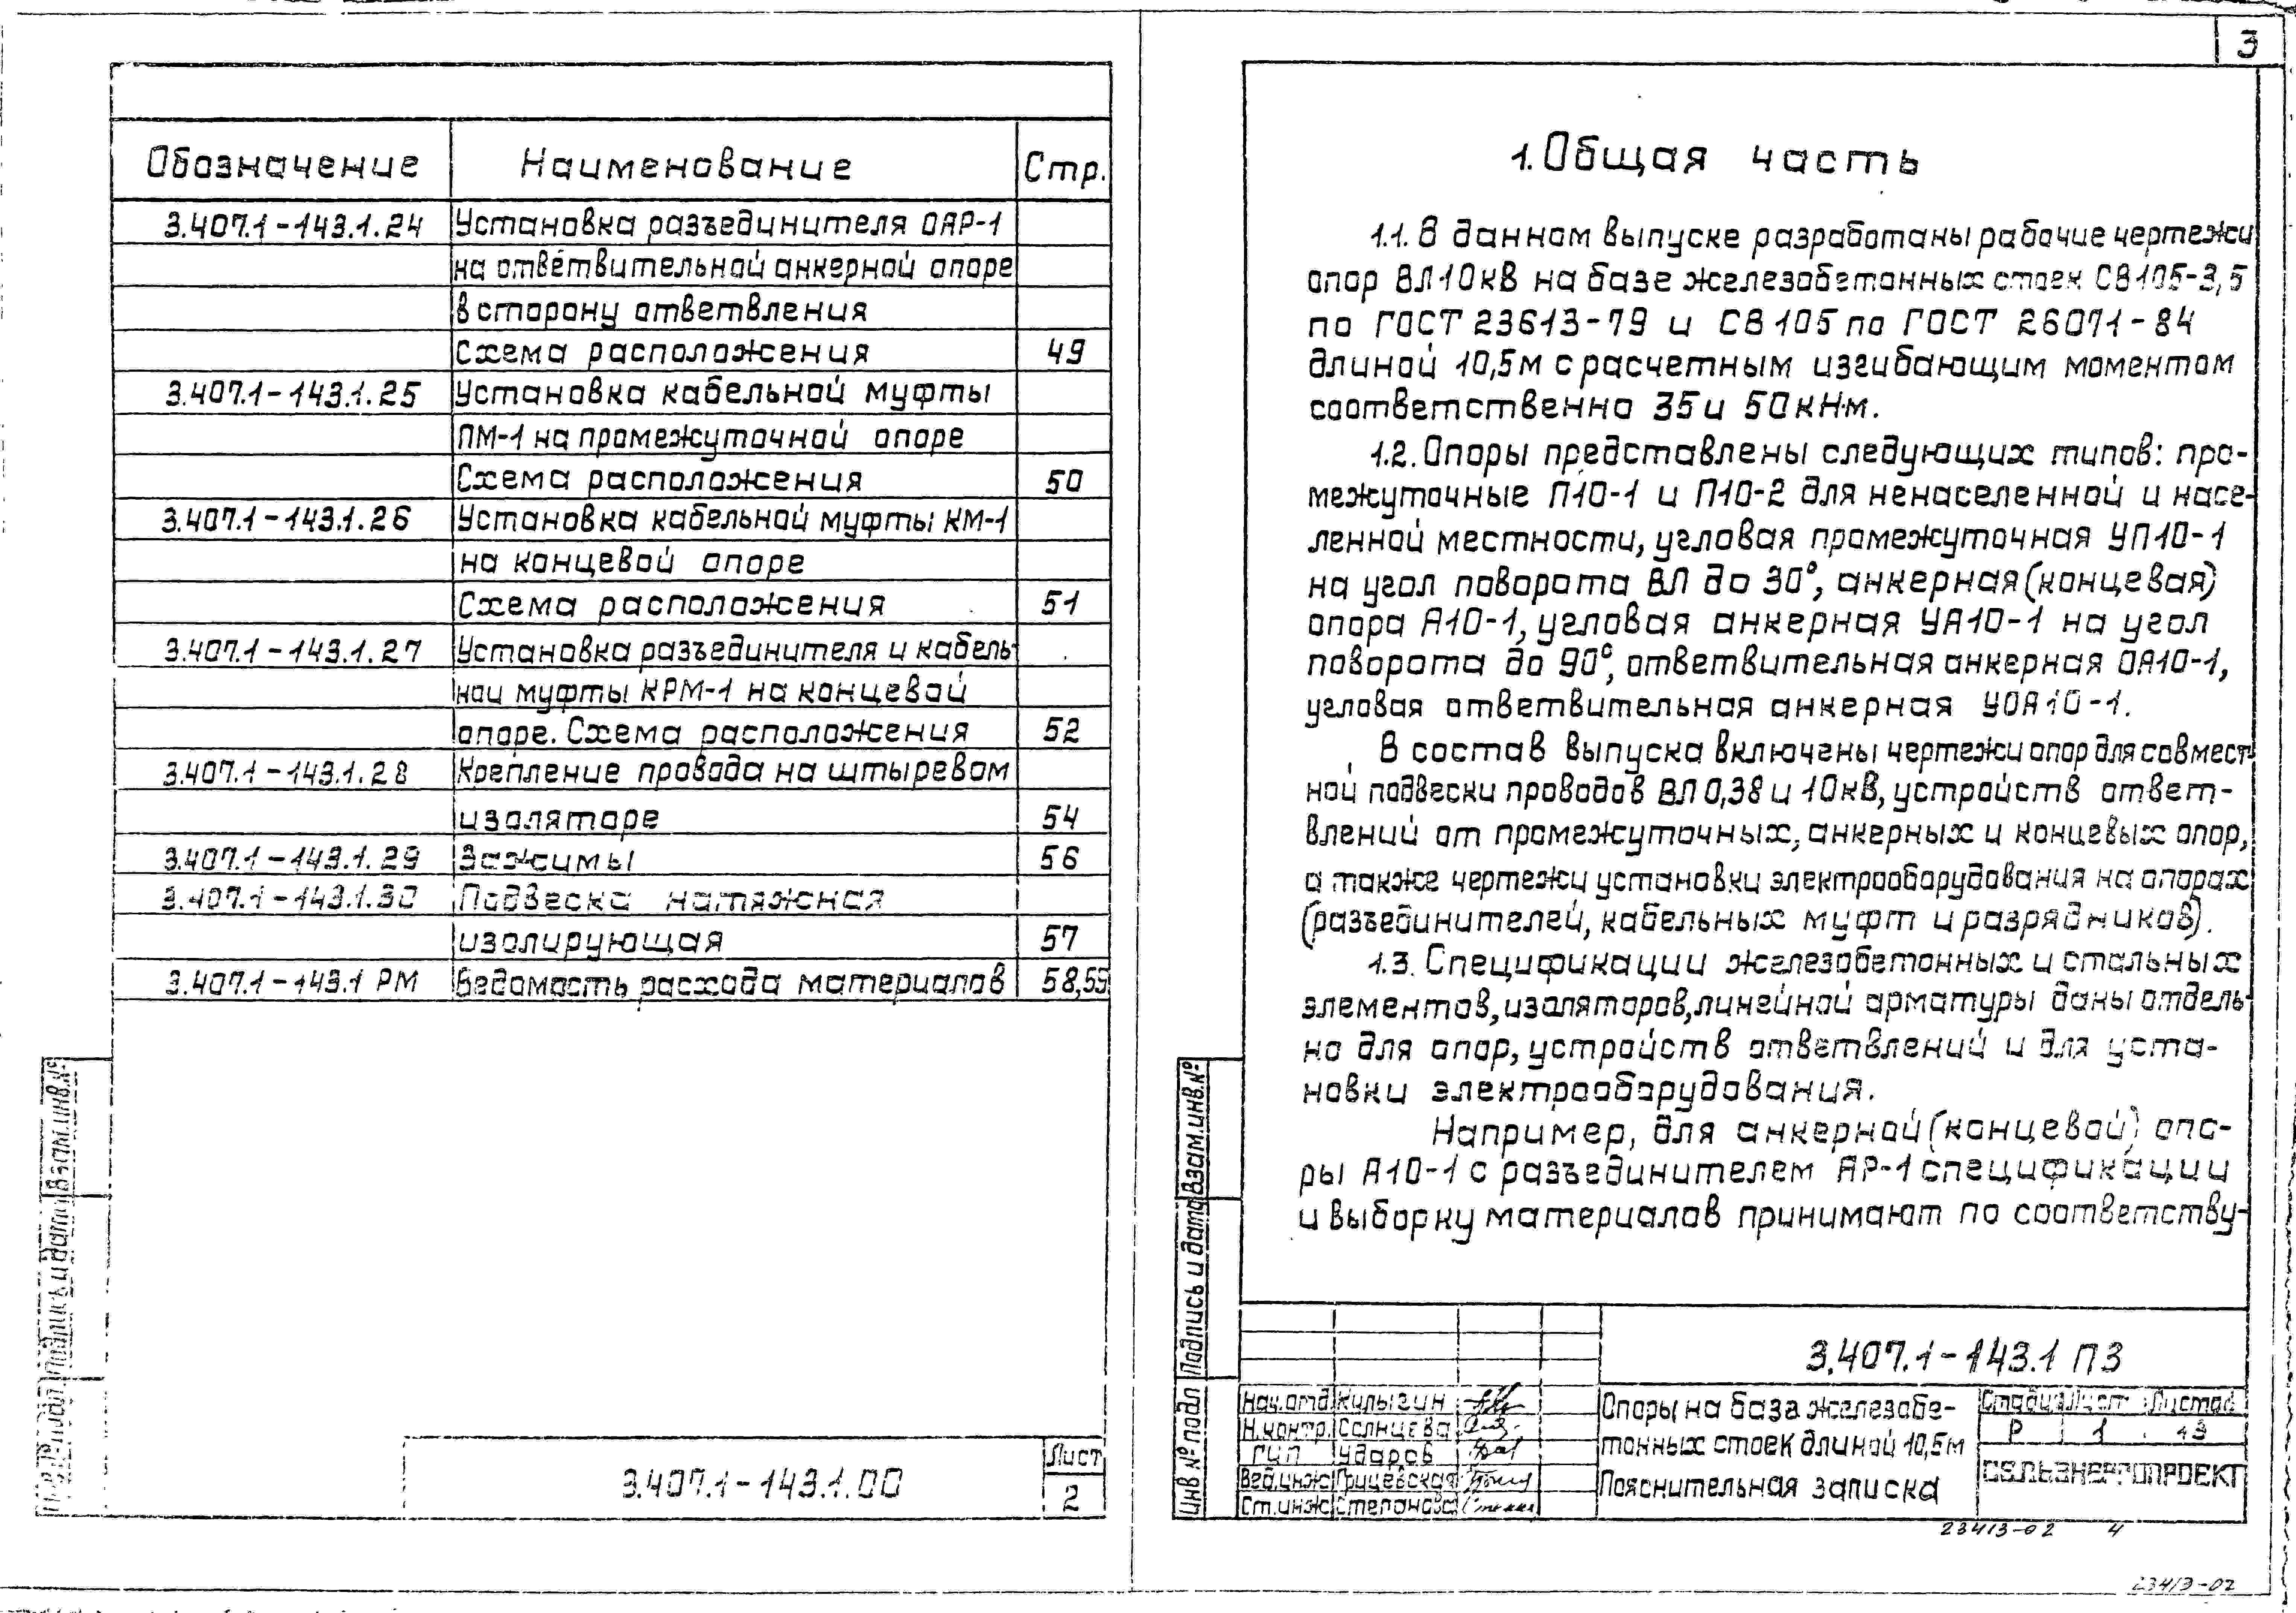 Обозначение Наименование Стр.
3.407.1-143.1.24 Установка разъединителя ОАР-1
на ответвительной анкерной опоре
в сторону ответвления
Схема расположения 49
3.407.1-143.1.25 Установка кабельной муфты
ПМ-1 на промежуточной опоре
Схема расположения 50
3.407.1-143.1.26 Установка кабельной муфты КМ-1
на концевой опоре
Схема расположения 51
3.407.1-143.1.27 Установка разъединителя и кабель-
ной муфты КРМ-1 на концевой
опоре. Схема расположения 52
3.407.1-143.1.28 Крепление провода на штыревом
изоляторе 54
3.407.1-143.1.29 Зажимы 56
3.407.1-143.1.30 Подвеска натяжная
изолирующая 57
3.407.1-143.1 РМ Ведомость расхода материалов 58,59
Взам.инв.№
Подпись и дата
Инв.№ подл.
3.407.1-143.1.00
Лист
2
3
1. Общая часть
1.1. В данном выпуске разработаны рабочие чертежи
опор ВЛ10кВ на базе железобетонных стоек СВ105-3,5
по ГОСТ 23613-79 и СВ105 по ГОСТ 26071-84
длиной 10,5м с расчетным изгибающим моментом
соответственно 35 и 50 кН·м.
1.2. Опоры представлены следующих типов: про-
межуточные П10-1 и П10-2 для ненаселенной и насе-
ленной местности, угловая промежуточная УП10-1
на угол поворота ВЛ до 30°, анкерная (концевая)
опора А10-1, угловая анкерная УА10-1 на угол
поворота до 90°, ответвительная анкерная ОА10-1,
угловая ответвительная анкерная УОА10-1.
В состав выпуска включены чертежи опор для совмест-
ной подвески проводов ВЛ 0,38 и 10кВ, устройств ответ-
влений от промежуточных, анкерных и концевых опор,
а также чертежи установки электрооборудования на опорах
(разъединителей, кабельных муфт и разрядников).
1.3. Спецификации железобетонных и стальных
элементов, изоляторов, линейной арматуры даны отдель-
но для опор, устройств ответвлений и для уста-
новки электрооборудования.
Например, для анкерной (концевой) опо-
ры А10-1 с разъединителем АР-1 спецификации
и выборку материалов принимают по соответству-
Взам.инв.№
Подпись и дата
Инв № подл
3.407.1-143.1 ПЗ
Нач.отд. Кулыгин
Н.контр. Солнцева
ГИП Ударов
Вед.инж. Грицевская
Ст.инж. Степанова
Опоры на база железобе-
тонных стоек длиной 10,5м
Пояснительная записка
Стадия Лист Листов
Р 1 43
СЕЛЬЭНЕРГОПРОЕКТ
23413-02 4
23413-02